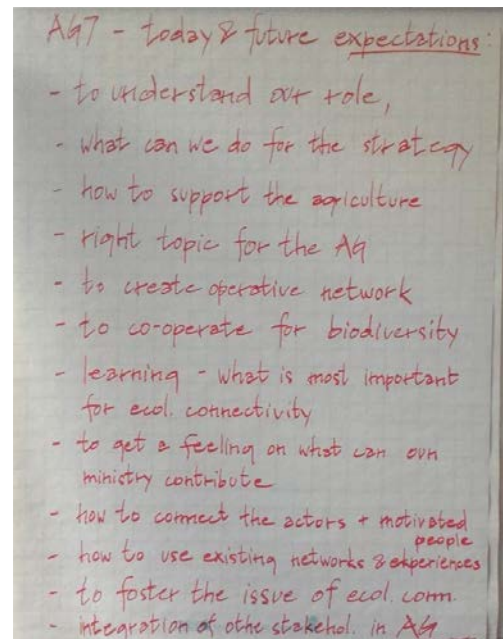 AG7 - today & future expectations:
- to understand our role,
- what can we do for the strategy
- how to support the agriculture
- right topic for the AG
- to create operative network
- to co-operate for biodiversity
- learning - what is most important
for ecol. connectivity
- to get a feeling on what can own
ministry contribute
- how to connect the actors + motivated
people
- how to use existing networks & experiences
- to foster the issue of ecol. conn.
- integration of othe stakehol. in AG